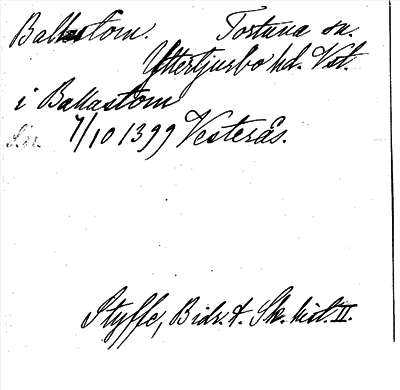 Ballastom. Tortuna sn.
Yttertjurbo hd. Vst.
i Ballastom
7/10 1399 Vesterås.
Styffe, Bidr. t. Sk. hist. II.